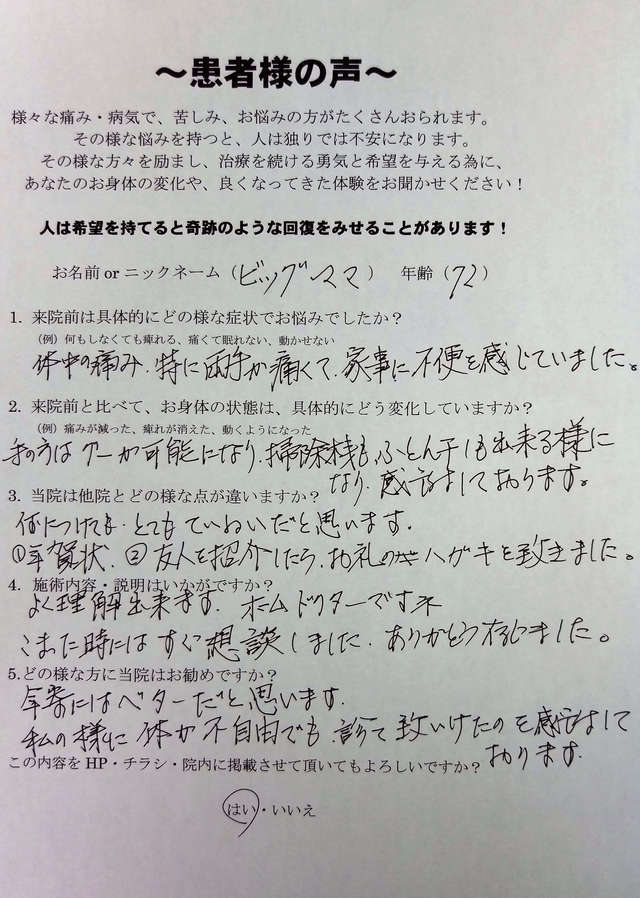 ～患者様の声～
様々な痛み・病気で、苦しみ、お悩みの方がたくさんおられます。
その様な悩みを持つと、人は独りでは不安になります。
その様な方々を励まし、治療を続ける勇気と希望を与える為に、
あなたのお身体の変化や、良くなってきた体験をお聞かせください！
人は希望を持てると奇跡のような回復をみせることがあります！
お名前 or ニックネーム（ビッグママ） 年齢（72）
1. 来院前は具体的にどの様な症状でお悩みでしたか？
（例）何もしなくても痺れる、痛くて眠れない、動かせない
体中の痛み、特に両手が痛くて、家事に不便を感じていました。
2. 来院前と比べて、お身体の状態は、具体的にどう変化していますか？
（例）痛みが減った、痺れが消えた、動くようになった
手の方はグーが可能になり、掃除機も、ふとん干しも出来る様に
なり、感謝しております。
3. 当院は他院とどの様な点が違いますか？
何につけても、とてもていねいだと思います。
①年賀状、②友人を紹介したら、お礼のハガキを致きました。
4. 施術内容・説明はいかがですか？
よく理解出来ます。ホームドクターです
こまった時にはすぐ想談しました、ありがとう存じました。
5.どの様な方に当院はお勧めですか？
年寄にはベターだと思います。
私の様に体が不自由でも、診て致いけたのを感謝して
おります。
この内容を HP・チラシ・院内に掲載させて頂いてもよろしいですか？
はい・いいえ